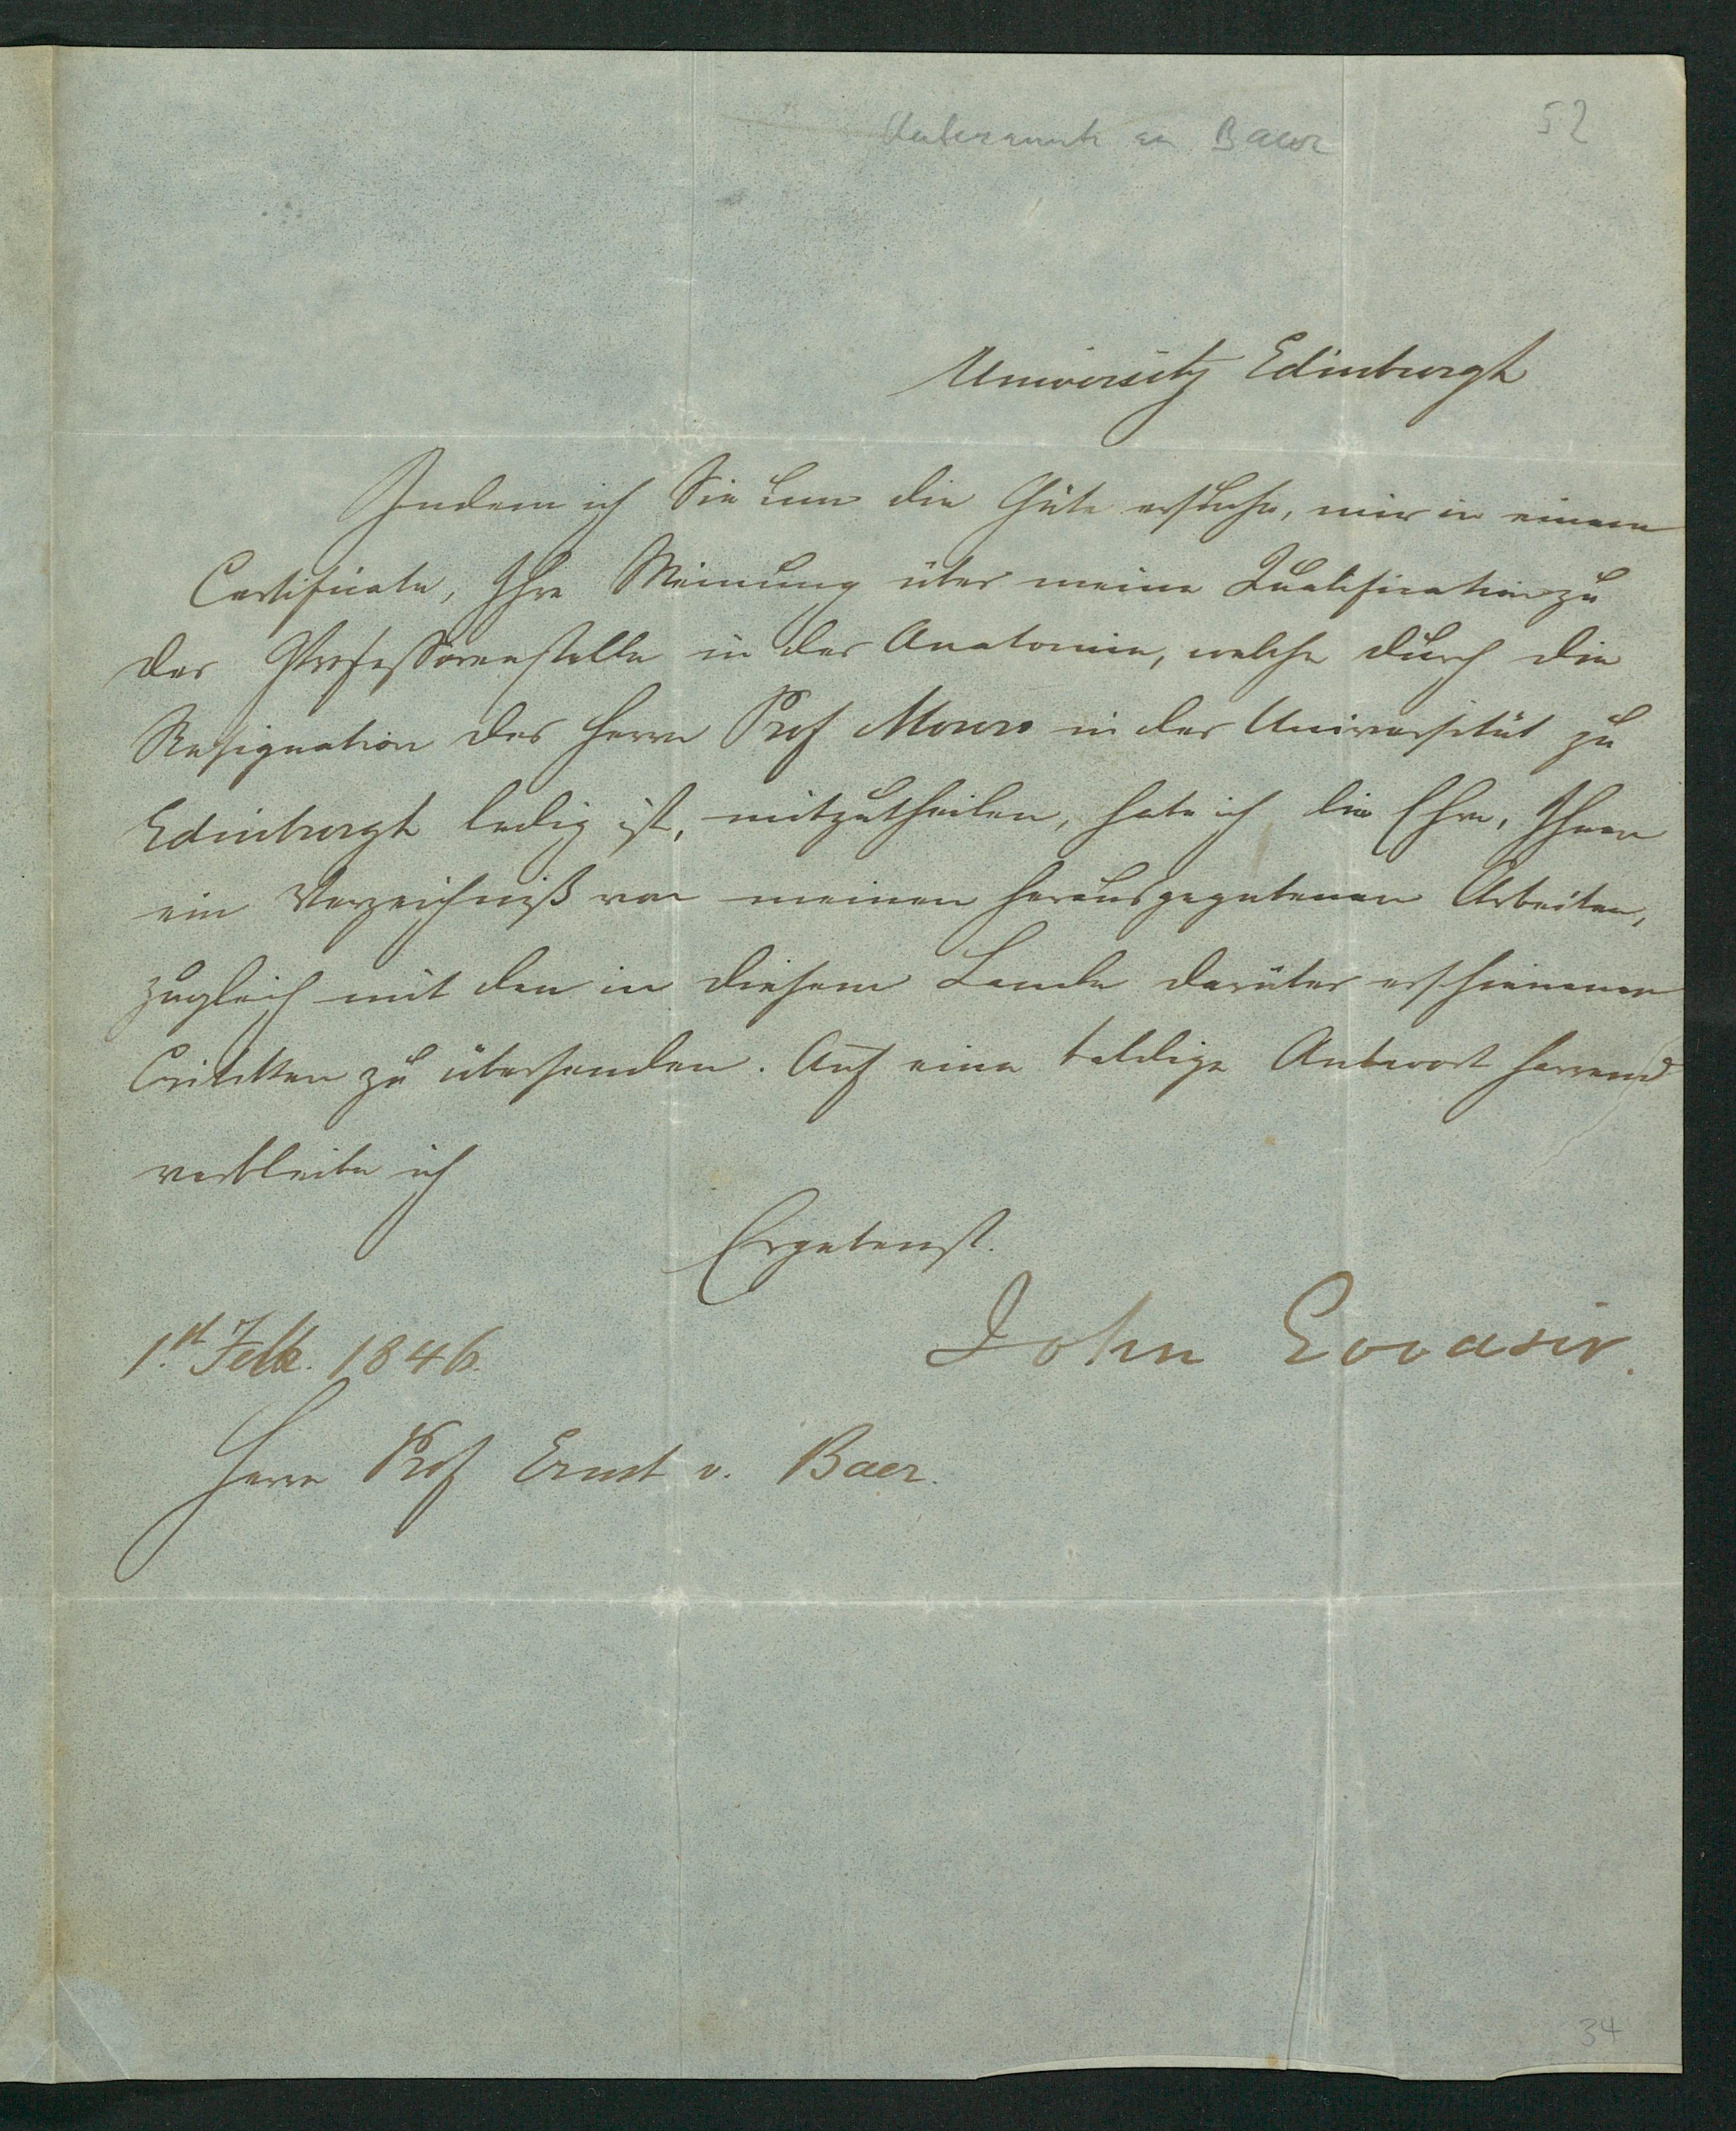 Unbekannt an Baer
52
University Edinburgh
Indem ich Sie um die Güte ersuche, mir in einem
Certificate, Ihre Meinung über meine Qualification zu
der Professorenstelle in der Anatomie, welche durch die
Resignation des Herrn Prof Monro in der Universität zu
Edinburgh ledig ist, mitzutheilen, habe ich die Ehre, Ihnen
ein Verzeichniß von meinen herausgegebenen Arbeiten,
zugleich mit den in diesem Lande darüber erschienenen
Critikken zu übersenden. Auf eine baldige Antwort harrend
verbleibe ich
Ergebenst.
John Goodsir.
1st Feb. 1846.
Herrn Prof Ernst v. Baer.
34